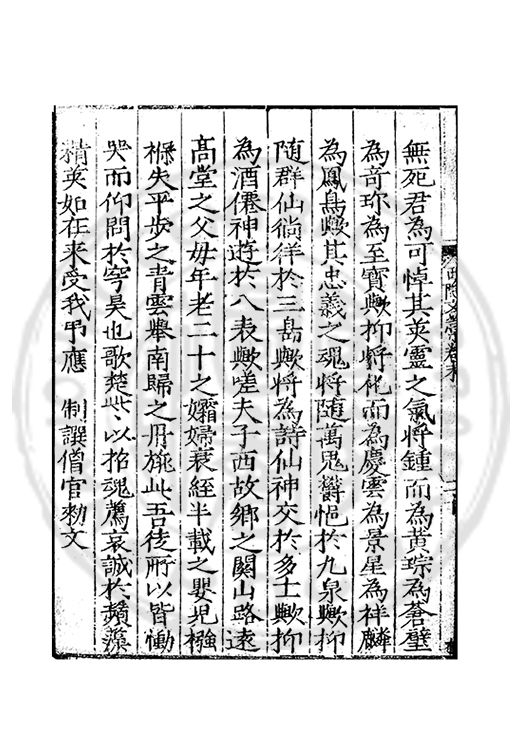 無死君為可悼其英靈之氣將鍾而為黃琮為蒼璧
為奇珎為至寶歟抑將化而為慶雲為景星為祥麟
為鳳鳥歟其忠義之魂將隨萬鬼欝悒於九泉歟抑
隨群仙徜徉於三島歟將為詩仙神交於多士歟抑
為酒僊神遊於八表歟嗟夫子西故鄉之關山路遠
高堂之父母年老二十之孀婦衰絰半載之嬰児襁
褓失平步之青雲舉南歸之丹旐此吾徒所以皆慟
哭而仰問於穹昊也歌楚些以招魂薦哀誠於蘋藻
精英如在来受我弔應 制譔僧官勑文